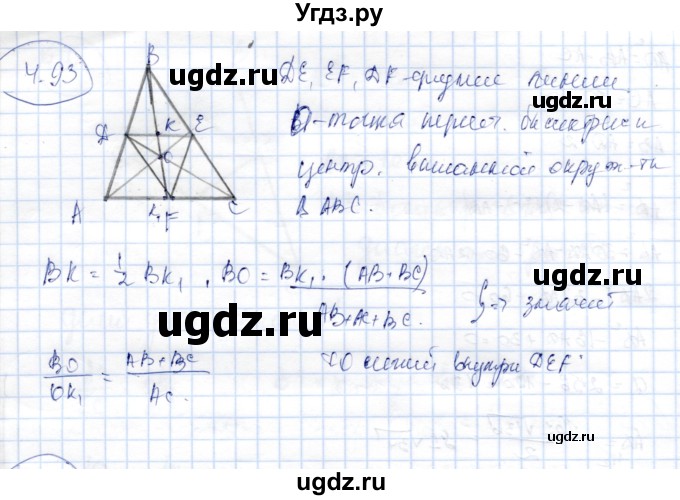 Угдз.ру
4.93
B
D K E
O
A K₁ F C
DE, EF, DF - средние линии.
O - точка перес. биссектрис и
центр. вписанной окруж-ти
в ABC.
BK = 1/2 BK₁, BO = BK₁ · (AB+BC) / AB+AC+BC. } => значит
BO/OK₁ = AB+BC/AC
т.O лежит внутри DEF.
ugdz.ru
ugdz.ru
ugdz.ru
ugdz.ru
ugdz.ru
ugdz.ru
ugdz.ru
ugdz.ru
ugdz.ru